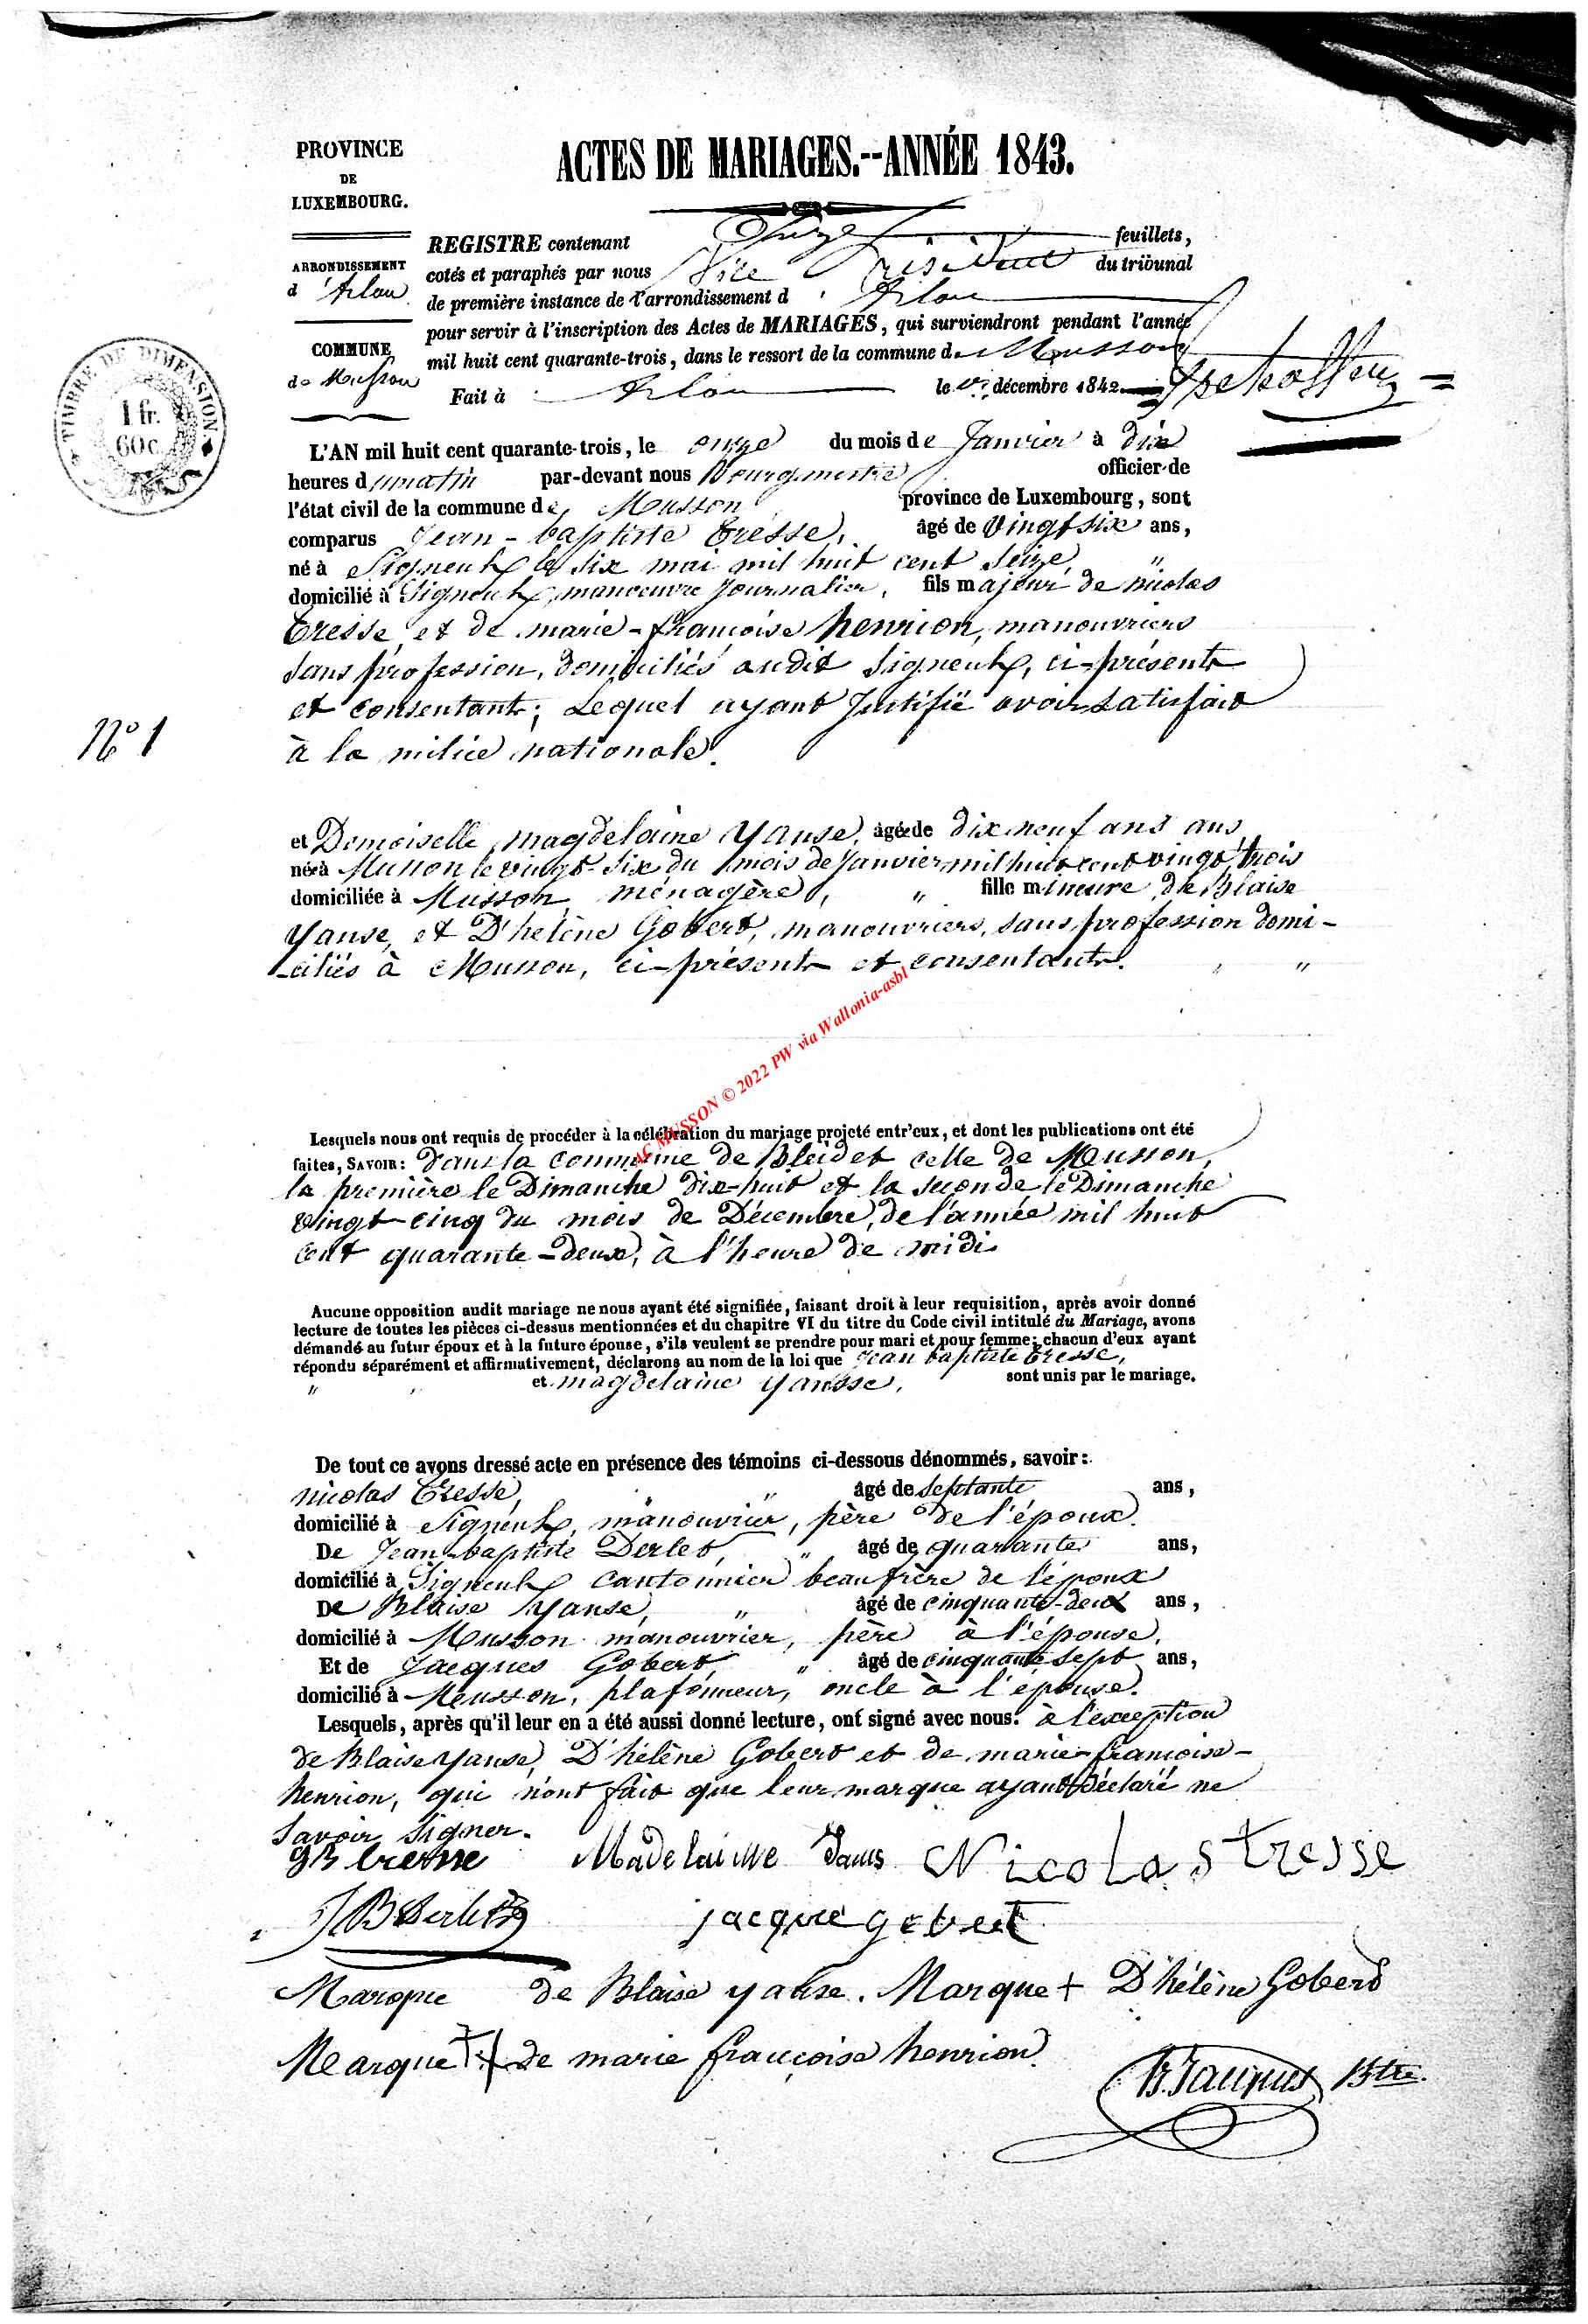 PROVINCE
DE
LUXEMBOURG.
ARRONDISSEMENT
d'Arlon
COMMUNE
de Musson
TIMBRE DE DIMENSION
1 fr.
60 c.
ACTES DE MARIAGES.--ANNÉE 1843.
REGISTRE contenant Onze feuillets,
cotés et paraphés par nous Vice Président du tribunal
de première instance de l'arrondissement d'Arlon
pour servir à l'inscription des Actes de MARIAGES, qui surviendront pendant l'année
mil huit cent quarante-trois, dans le ressort de la commune de Musson
Fait à Arlon le décembre 1842.
L'AN mil huit cent quarante-trois, le onze du mois de Janvier à dix
heures du matin par-devant nous Bourgmestre officier de
l'état civil de la commune de Musson province de Luxembourg, sont
comparus Jean-baptiste Cresse, âgé de vingt six ans,
né à Signeulx le six mai mil huit cent seize "
domicilié à Signeulx, manoeuvre Journalier, fils majeur de nicolas
Cresse et de marie-françoise henrion, manouvriers
sans profession, domiciliés audit Signeulx, ci-présents
et consentants; Lequel ayant Justifié avoir satisfait
à la milice nationale.
N° 1
et Demoiselle magdelaine Yanse, âgée de dix neuf ans ans
née à Musson le vingt-six du mois de Janvier mil huit cent vingt trois
domiciliée à Musson ménagère, " fille mineure de Blaise
Yanse, et D'hélène Gobert, manouvriers, sans profession domi-
-ciliés à Musson, ci-présents et consentants. "
AC MUSSON © 2022 PW via Wallonia-asbl
Lesquels nous ont requis de procéder à la célébration du mariage projeté entr'eux, et dont les publications ont été
faites, SAVOIR: dans la commune de Bleid et celle de Musson,
la première le Dimanche dix-huit et la seconde le Dimanche
vingt-cinq du mois de Décembre, de l'année mil huit
cent quarante-deux, à l'heure de midi.
Aucune opposition audit mariage ne nous ayant été signifiée, faisant droit à leur requisition, après avoir donné
lecture de toutes les pièces ci-dessus mentionnées et du chapitre VI du titre du Code civil intitulé du Mariage, avons
démandé au futur époux et à la future épouse, s'ils veulent se prendre pour mari et pour femme; chacun d'eux ayant
répondu séparément et affirmativement, déclarons au nom de la loi que Jean baptiste Cresse,
" " et magdelaine Yansse, sont unis par le mariage.
De tout ce avons dressé acte en présence des témoins ci-dessous dénommés, savoir:
nicolas Cresse, " âgé de septante ans,
domicilié à Signeulx, manouvrier, père de l'époux.
De Jean-baptiste Derlet, " âgé de quarante ans,
domicilié à Signeulx cantonnier beau frère de l'époux
De Blaise Yanse, " âgé de cinquante-deux ans,
domicilié à Musson manouvrier, père à l'épouse.
Et de Jacques Gobert, " âgé de cinquante sept ans,
domicilié à Musson, plafonneur, oncle à l'épouse.
Lesquels, après qu'il leur en a été aussi donné lecture, ont signé avec nous. à l'exception
de Blaise Yanse, D'hélène Gobert et de marie-françoise-
henrion, qui n'ont fait que leur marque ayant déclaré ne
savoir signer.
JB tresse Madelainne Jams Nicolas tresse
JB Derlet jacque gobert
Marque de Blaise yanse. Marque + D'hélène Gobert
Marque + de marie françoise henrion
Btre.